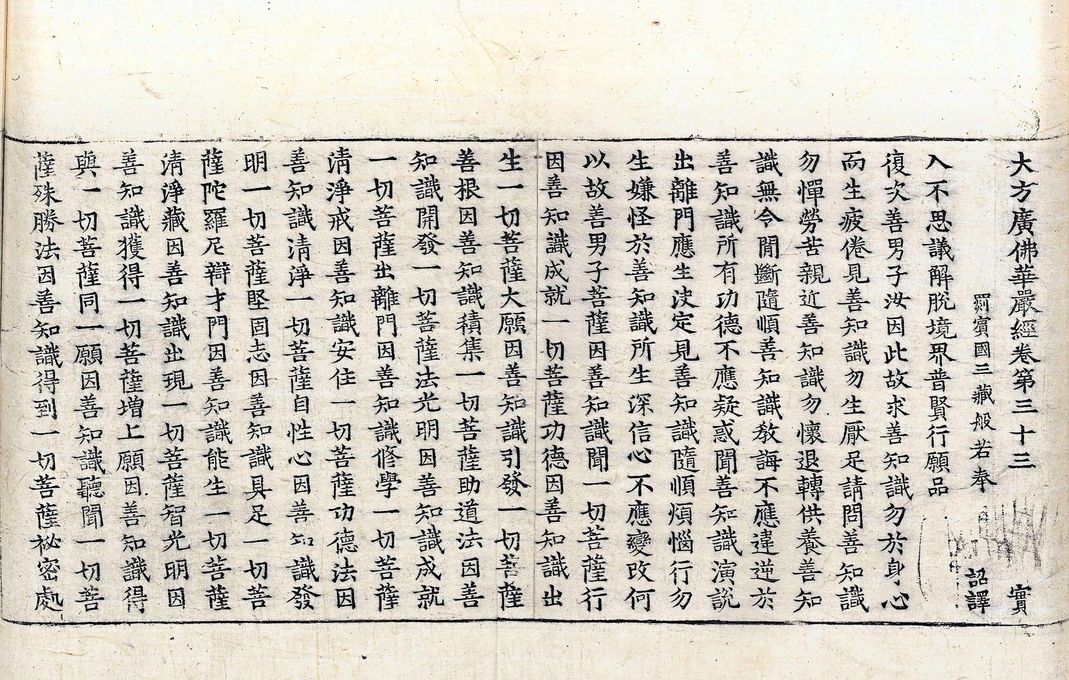 大方廣佛華嚴經卷第三十三 實
罽賓國三藏般若奉 詔譯
入不思議解脫境界普賢行願品
復次善男子汝因此故求善知識勿於身心
而生疲倦見善知識勿生厭足請問善知識
勿憚勞苦親近善知識勿懷退轉供養善知
識無令間斷隨順善知識教誨不應違逆於
善知識所有功德不應疑惑聞善知識演說
出離門應生決定見善知識隨順煩惱行勿
生嫌怪於善知識所生深信心不應變改何
以故善男子菩薩因善知識聞一切菩薩行
因善知識成就一切菩薩功德因善知識出
生一切菩薩大願因善知識引發一切菩薩
善根因善知識積集一切菩薩助道法因善
知識開發一切菩薩法光明因善知識成就
一切菩薩出離門因善知識修學一切菩薩
清淨戒因善知識安住一切菩薩功德法因
善知識清淨一切菩薩自性心因善知識發
明一切菩薩堅固志因善知識具足一切菩
薩陀羅尼辯才門因善知識能生一切菩薩
清淨藏因善知識出現一切菩薩智光明因
善知識獲得一切菩薩增上願因善知識得
與一切菩薩同一願因善知識聽聞一切菩
薩殊勝法因善知識得到一切菩薩祕密處